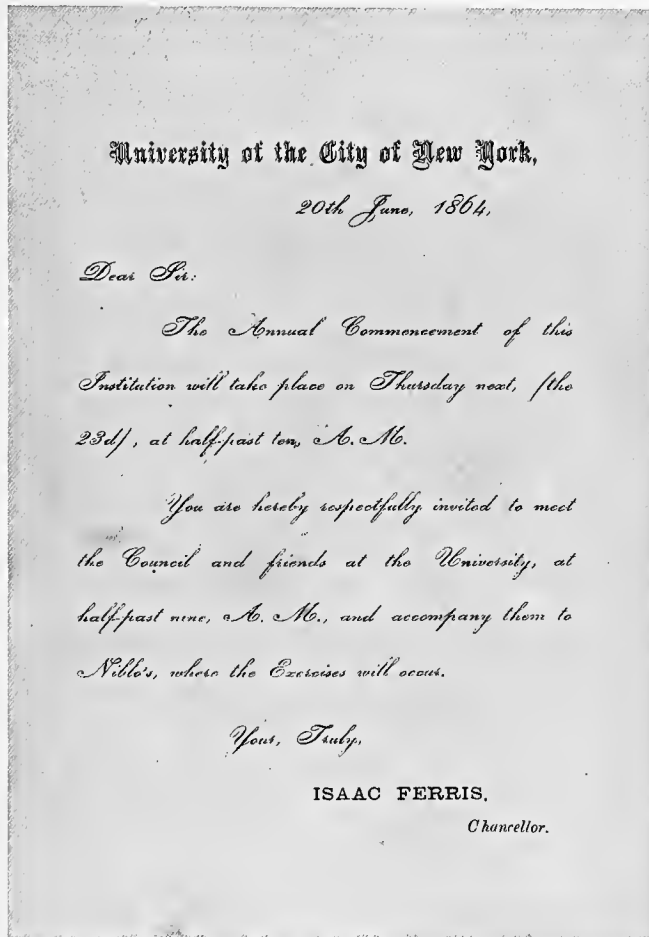 University of the City of New York,
20th June, 1864,
Dear Sir:
The Annual Commencement of this
Institution will take place on Thursday next, (the
23d), at half-past ten, A. M.
You are hereby respectfully invited to meet
the Council and friends at the University, at
half-past nine, A. M., and accompany them to
Niblo's, where the Exercises will occur.
Your, Truly,
ISAAC FERRIS,
Chancellor.